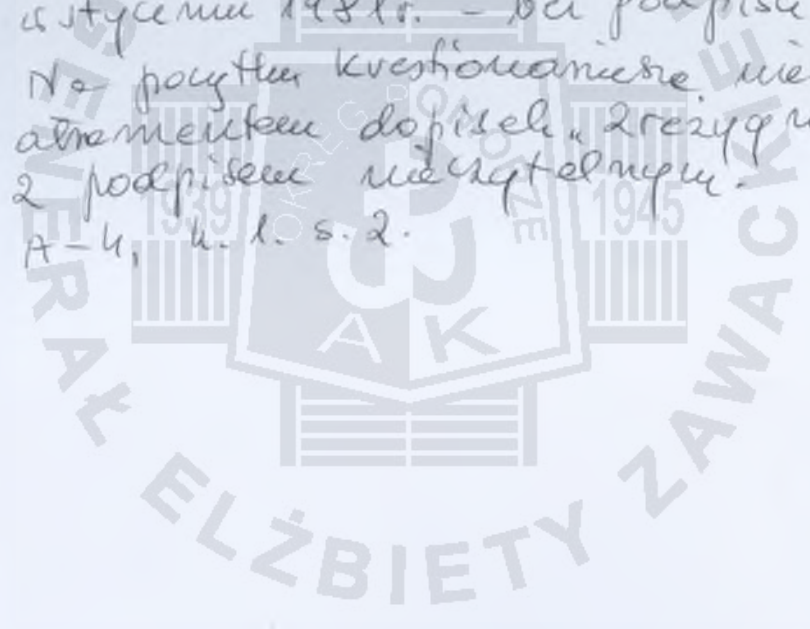 w styczniu 1981r. – bez podpisu
Na początku kwestionariusza nie
atramentem dopisek „zrezygn
z podpisem nieczytelnym.
A-4, k. 1. s. 2.
OKRĘG POMORZE
1939 1945
AK
GENERAŁ ELŻBIETY ZAWACKIE